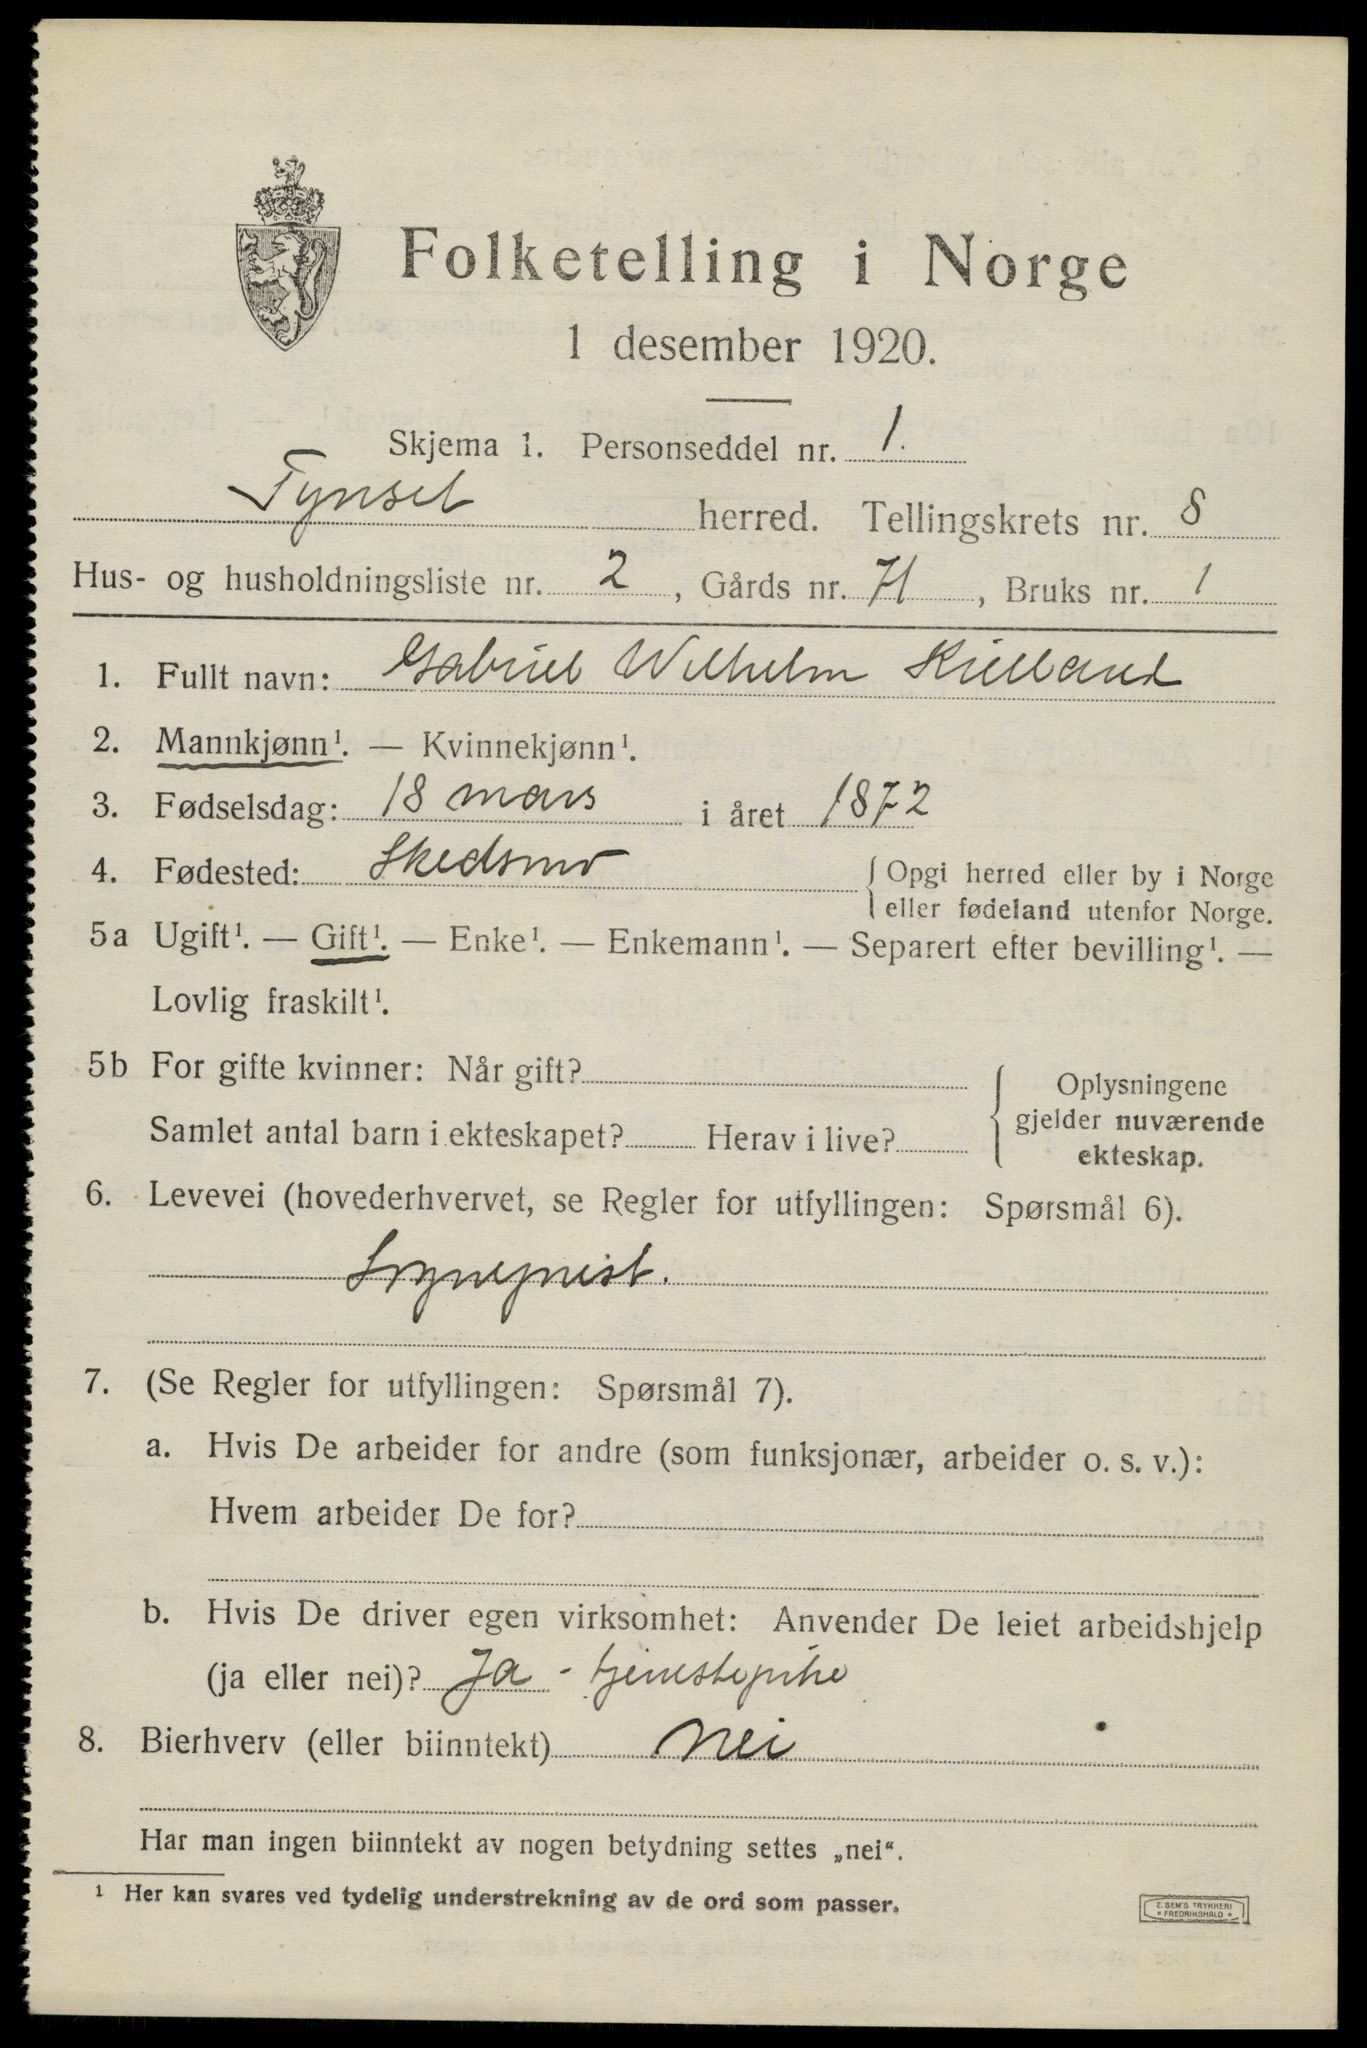 Folketelling i Norge
1 desember 1920.
Skjema 1. Personseddel nr. 1.
Tynset herred. Tellingskrets nr. 8
Hus- og husholdningsliste nr. 2, Gårds nr. 71, Bruks nr. 1
1. Fullt navn: Gabriel Wilhelm Kielland
2. Mannkjønn¹. — Kvinnekjønn¹.
3. Fødselsdag: 18 mars i året 1872
4. Fødested: Skedsmo { Opgi herred eller by i Norge
eller fødeland utenfor Norge.
5a Ugift¹. — Gift¹. — Enke¹. — Enkemann¹. — Separert efter bevilling¹. —
Lovlig fraskilt¹.
5b For gifte kvinner: Når gift? { Oplysningene
gjelder nuværende
Samlet antal barn i ekteskapet? Herav i live?
ekteskap.
6. Levevei (hovederhvervet, se Regler for utfyllingen: Spørsmål 6).
Sogneprest.
7. (Se Regler for utfyllingen: Spørsmål 7).
a. Hvis De arbeider for andre (som funksjonær, arbeider o. s. v.):
Hvem arbeider De for?
b. Hvis De driver egen virksomhet: Anvender De leiet arbeidshjelp
(ja eller nei)? Ja - tjenestepike
8. Bierhverv (eller biinntekt) nei
Har man ingen biinntekt av nogen betydning settes „nei“.
¹ Her kan svares ved tydelig understrekning av de ord som passer.
E. SEM'S TRYKKERI
FREDRIKSHALD